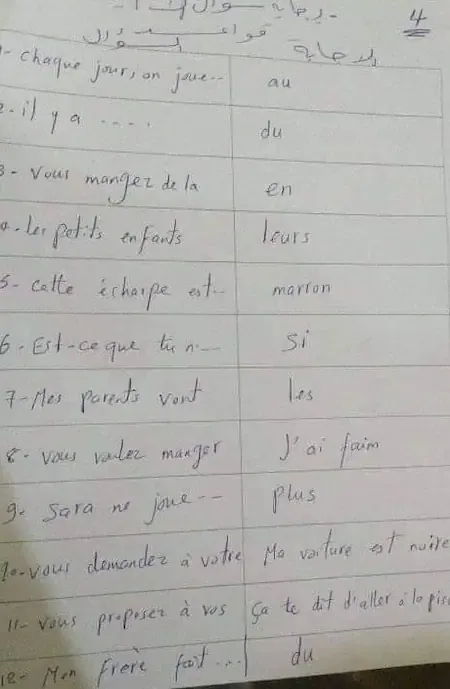 4
الاجابة قواعد السؤال
1- chaque jour, on joue... au
2- il y a .... du
3- Vous mangez de la en
4- les petits enfants leurs
5- cette écharpe est... marron
6- Est-ce que tu n... Si
7- Mes parents vont les
8- vous voulez manger J'ai faim
9- Sara ne joue... plus
10- vous demandez à votre Ma voiture est noire
11- vous proposez à vos ça te dit d'aller à la pisc
12- Mon frère fait... du